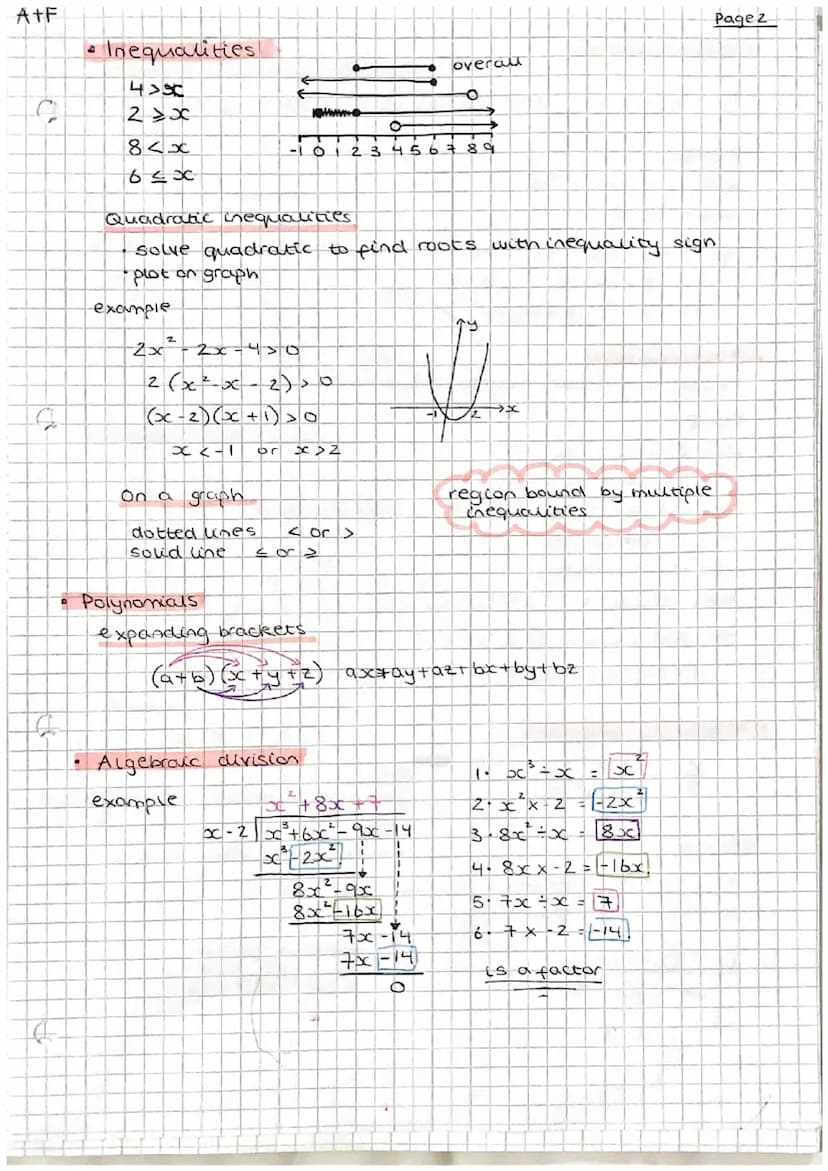 A+F
Page 2
• Inequalities
overall
4 > x
2 ≥ x
8 < x
6 ≤ x
-1 0 1 2 3 4 5 6 7 8 9
Quadratic inequalities
• solve quadratic to find roots with inequality sign
• plot on graph
example
2x² - 2x - 4 > 0
2 (x² - x - 2) > 0
(x - 2)(x + 1) > 0
x < -1 or x > 2
y
-1 2 x
on a graph
dotted lines < or >
solid line ≤ or ≥
region bound by multiple
inequalities
• Polynomials
expanding brackets
(a+b)(x+y+z) ax+ay+az+bx+by+bz
• Algebraic division
example
x² + 8x + 7
x - 2 x³ + 6x² - 9x - 14
x³ - 2x²
8x² - 9x
8x² - 16x
7x - 14
7x - 14
0
1. x³ ÷ x = x²
2. x² x - 2 = -2x²
3. 8x² ÷ x = 8x
4. 8x x - 2 = -16x
5. 7x ÷ x = 7
6. 7 x - 2 = -14
is a factor